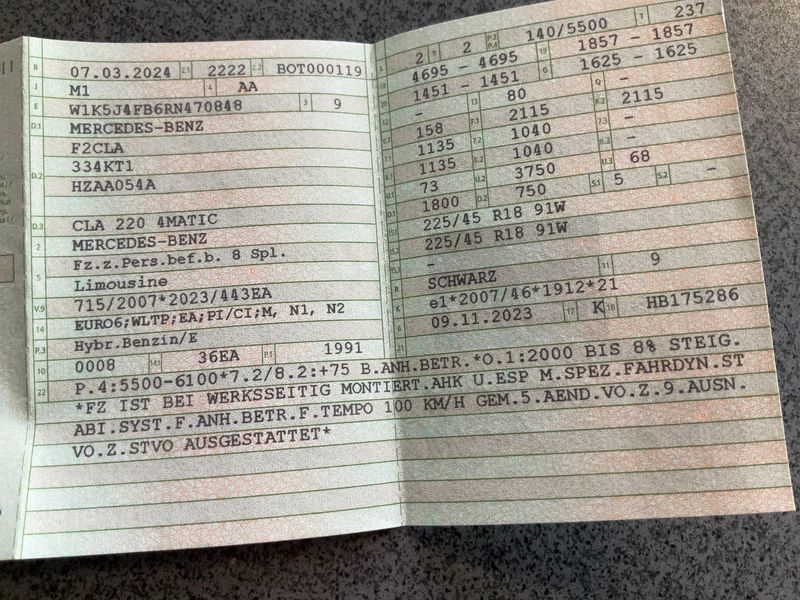 B 07.03.2024 2.1 2222 2.2 BOT000119
J M1 4 AA
E W1K5J4FB6RN470848 3 9
D.1 MERCEDES-BENZ
F2CLA
D.2 334KT1
HZAA054A
D.3 CLA 220 4MATIC
2 MERCEDES-BENZ
Fz.z.Pers.bef.b. 8 Spl.
5 Limousine
V.9 715/2007*2023/443EA
14 EURO6;WLTP;EA;PI/CI;M, N1, N2
P.3 Hybr.Benzin/E
10 0008 14.1 36EA P.1 1991
L 2 9 2 P.2 P.4 140/5500 T 237
18 4695 - 4695 19 1857 - 1857
20 1451 - 1451 G 1625 - 1625
12 - 13 80 Q -
V.7 158 F.1 2115 F.2 2115
7.1 1135 7.2 1040 7.3 -
8.1 1135 8.2 1040 8.3 -
U.1 73 U.2 3750 U.3 68
O.1 1800 O.2 750 S.1 5 S.2 -
15.1 225/45 R18 91W
15.2 225/45 R18 91W
15.3 -
R SCHWARZ 11 9
K e1*2007/46*1912*21
6 09.11.2023 17 K 16 HB175286
21
22 P.4:5500-6100*7.2/8.2:+75 B.ANH.BETR.*O.1:2000 BIS 8% STEIG.
*FZ IST BEI WERKSSEITIG MONTIERT.AHK U.ESP M.SPEZ.FAHRDYN.ST
ABI.SYST.F.ANH.BETR.F.TEMPO 100 KM/H GEM.5.AEND.VO.Z.9.AUSN.
VO.Z.STVO AUSGESTATTET*